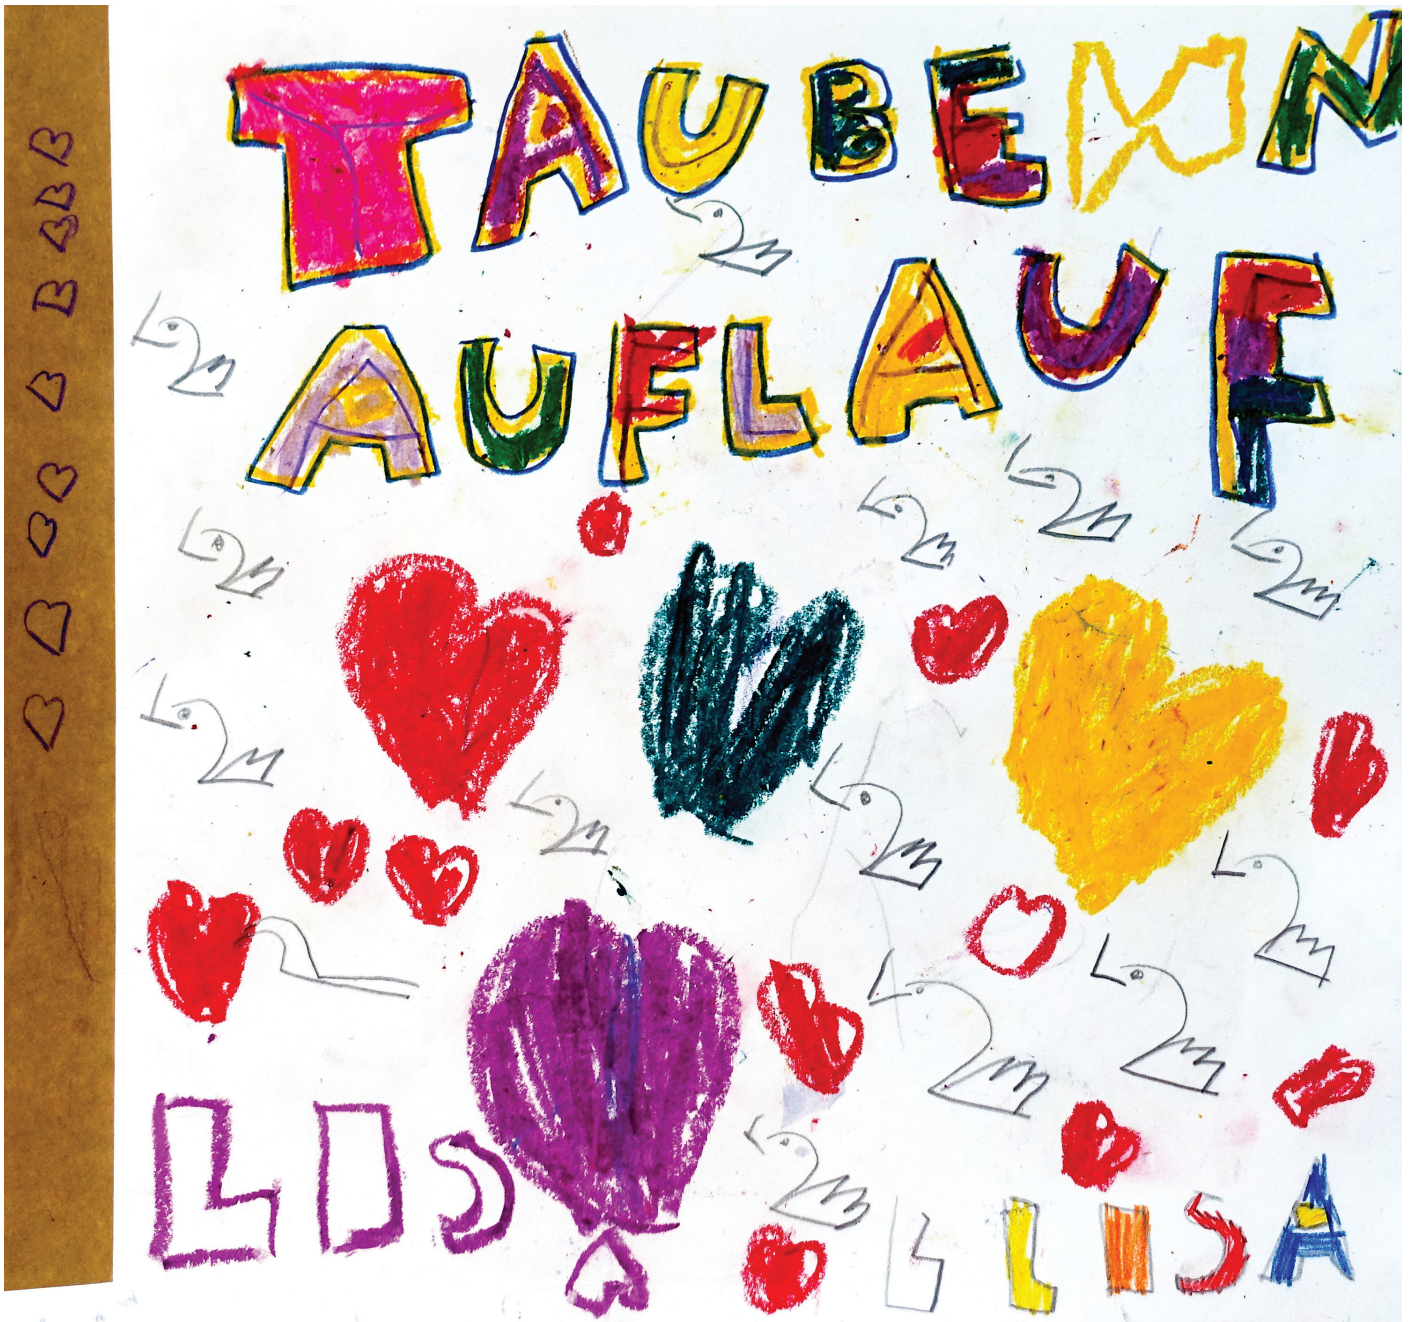 TAUBEN
AUFLAUF
LIS
L LISA